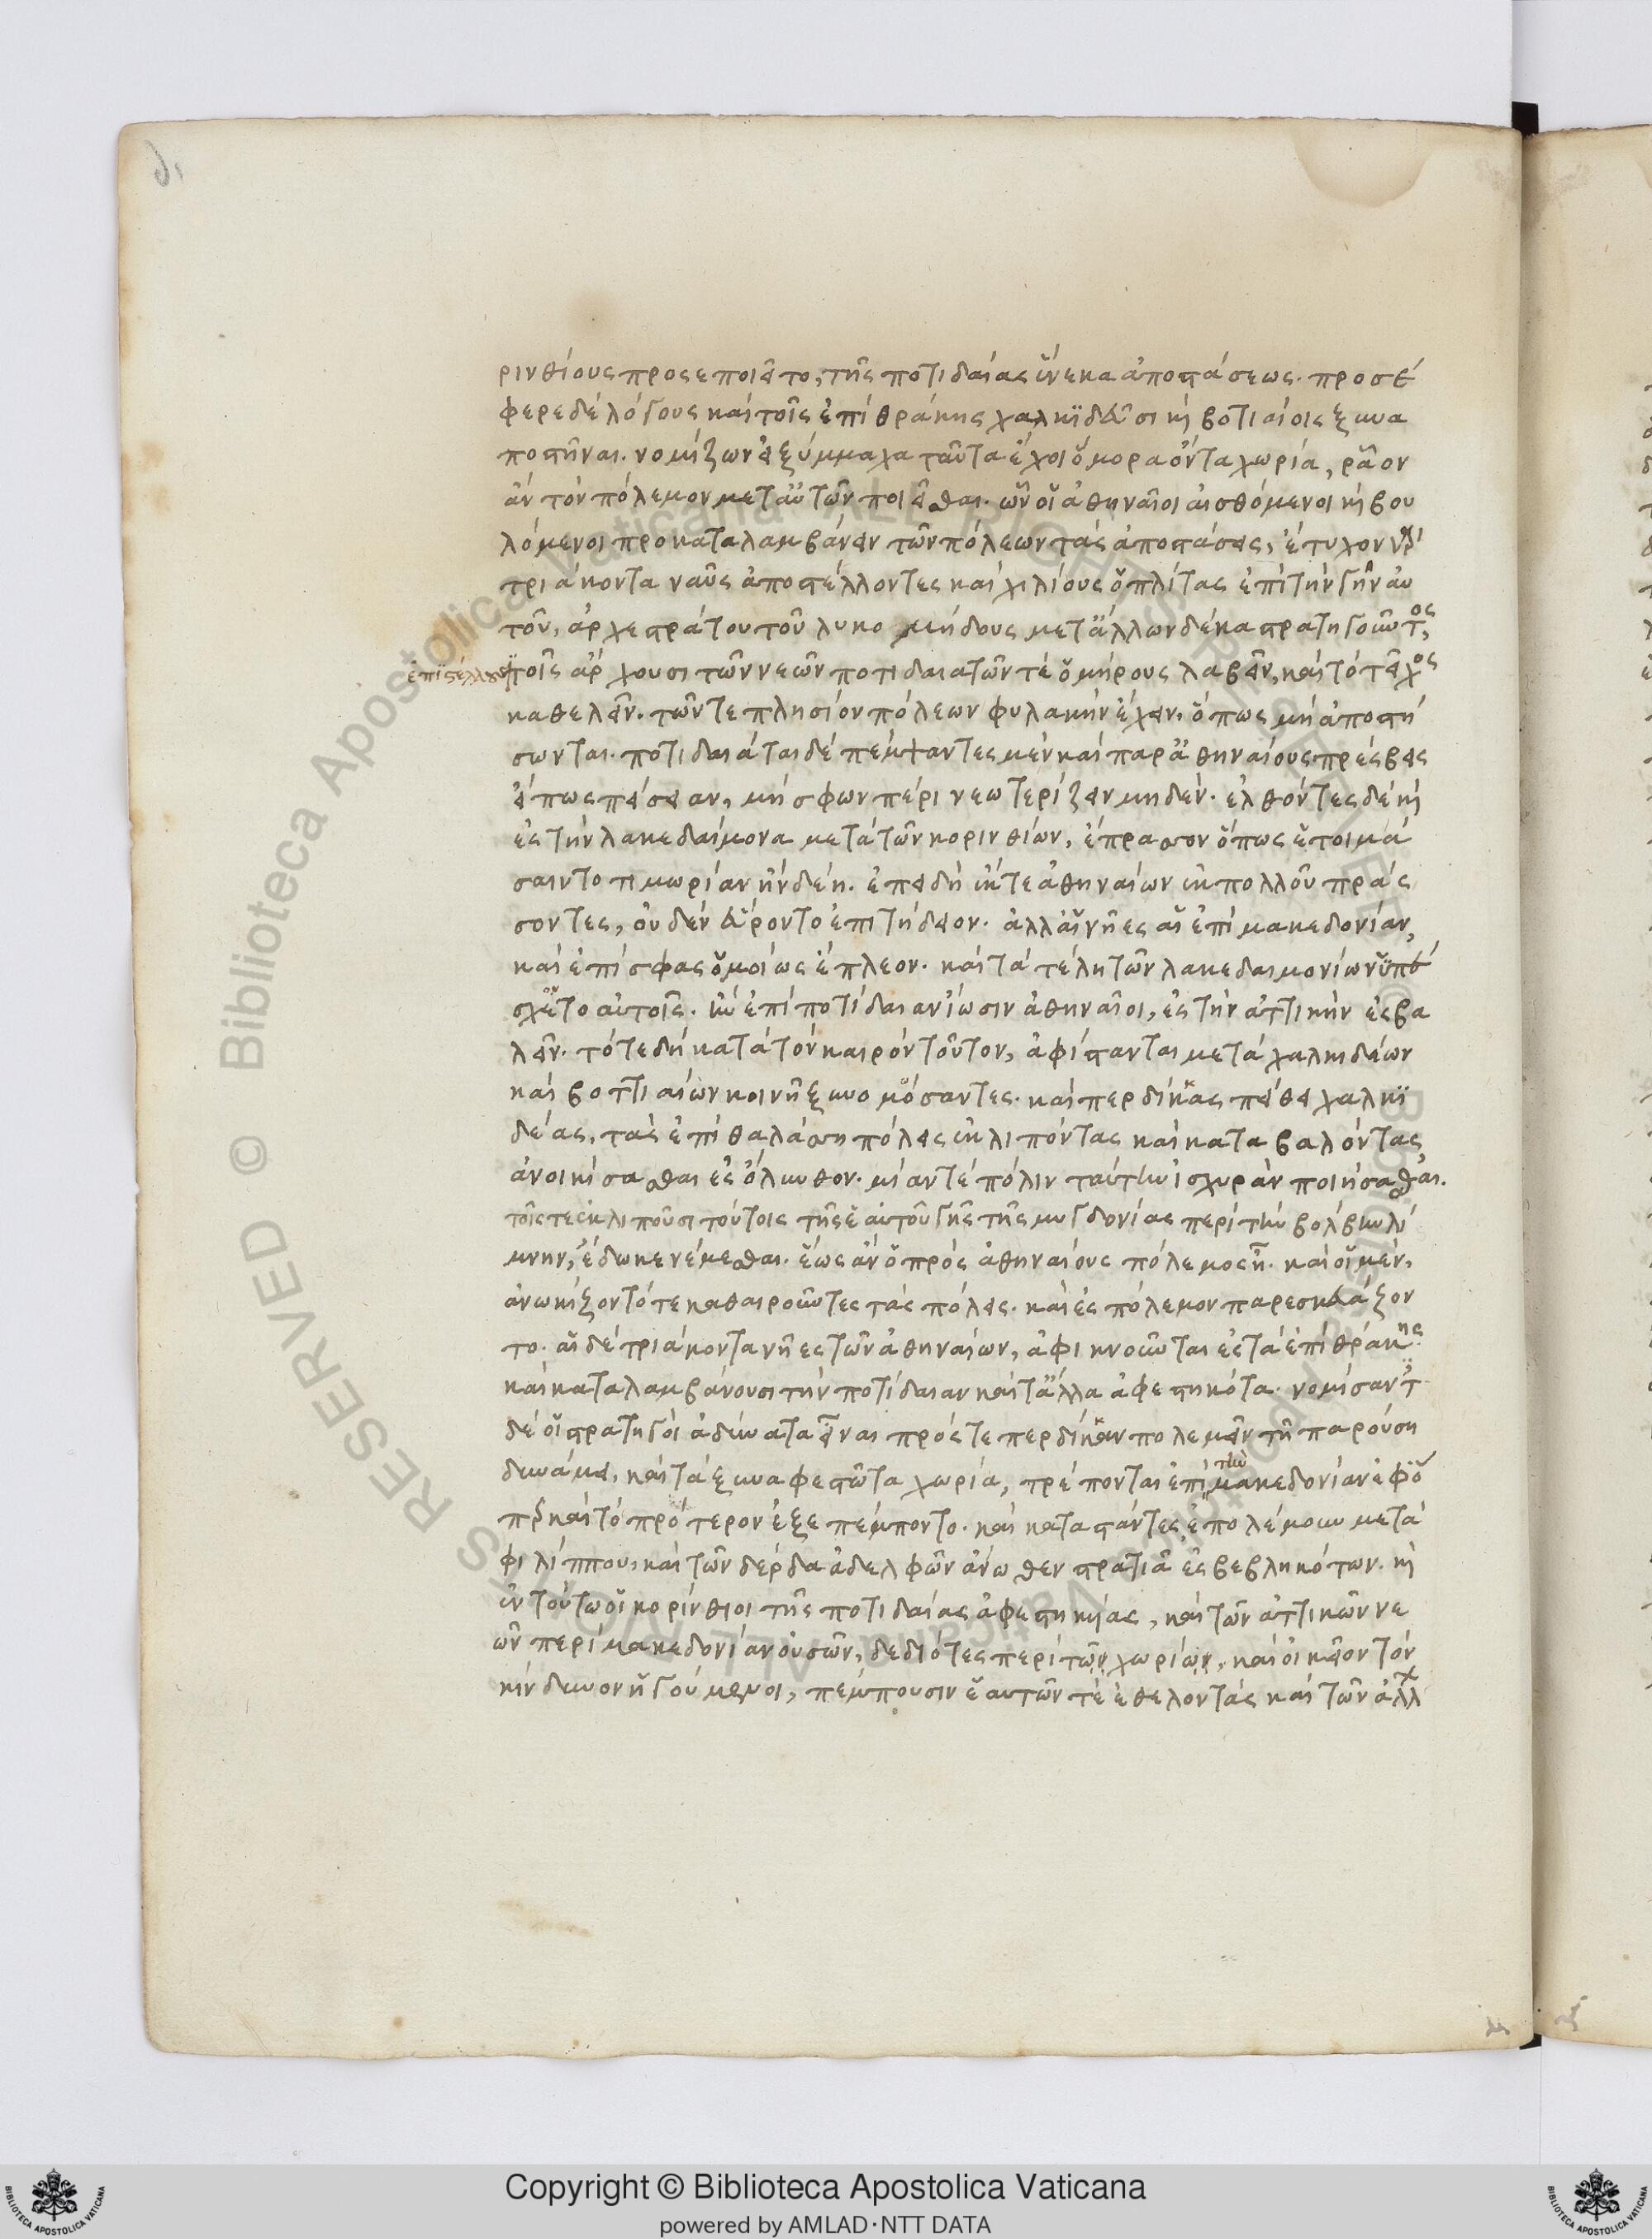 ρινθίους προσεποιεῖτο, τῆς ποτιδαίας ἕνεκα ἀποστάσεως. προσέ
φερε δὲ λόγους καὶ τοῖς ἐπὶ θράκης χαλκιδεῦσι καὶ βοτιαίοις ξυνα
ποστῆναι. νομίζων εἰ ξύμμαχα ταῦτα ἔχοι ὅμορα ὄντα χωρία, ρᾶον
ἂν τὸν πόλεμον μετ' αὐτῶν ποιεῖσθαι. ὧν οἱ ἀθηναῖοι αἰσθόμενοι καὶ βου
λόμενοι προκαταλαμβάνειν τῶν πόλεων τὰς ἀποστάσεις, ἔτυχον γὰρ
τριάκοντα ναῦς ἀποστέλλοντες καὶ χιλίους ὁπλίτας ἐπὶ τὴν γῆν αὐ
τοῦ, ἀρχεστράτου τοῦ λυκομήδους μετ' ἄλλων δέκα στρατηγοῦντος,
ἐπιστέλλουσι τοῖς ἄρχουσι τῶν νεῶν ποτιδαιατῶν τὲ ὁμήρους λαβεῖν, καὶ τὸ τεῖχος
καθελεῖν. τῶν τε πλησίον πόλεων φυλακὴν ἔχειν. ὅπως μὴ ἀποστή
σωνται. ποτιδαιάται δὲ πέμψαντες μὲν καὶ παρ' ἀθηναίους πρέσβεις
εἴ πως πείσειαν, μὴ σφων πέρι νεωτερίζειν μηδέν. ἐλθόντες δὲ καὶ
ἐς τὴν λακεδαίμονα μετὰ τῶν κορινθίων, ἔπρασσον ὅπως ἑτοιμά
σαιντο τιμωρίαν ἢν δέη. ἐπειδὴ ἔκ τε ἀθηναίων ἐκ πολλοῦ πράς
σοντες, οὐδὲν εὕροντο ἐπιτήδειον. ἀλλ' αἱ νῆες αἱ ἐπὶ μακεδονίαν,
καὶ ἐπὶ σφας ὁμοίως ἔπλεον. καὶ τὰ τέλη τῶν λακεδαιμονίων ὑπέ
σχετο αὐτοῖς. ἢν ἐπὶ ποτίδαιαν ἴωσιν ἀθηναῖοι, ἐς τὴν ἀττικὴν ἐσβα
λεῖν. τότε δὴ κατὰ τὸν καιρὸν τοῦτον, ἀφίστανται μετὰ χαλκιδέων
καὶ βοττιαίων κοινῆ ξυνομόσαντες. καὶ περδίκκας πείθει χαλκι
δέας, τὰς ἐπὶ θαλάσση πόλεις ἐκλιπόντας καὶ καταβαλόντας,
ἀνοικίσασθαι ἐς ὄλυνθον. μίαν τὲ πόλιν ταύτην ἰσχυρὰν ποιήσασθαι.
τοῖς τε ἐκλιποῦσι τούτοις τῆς ἑαυτοῦ γῆς τῆς μυγδονίας περὶ τὴν βόλβην λί
μνην, ἔδωκε νέμεσθαι. ἕως ἂν ὁ πρὸς ἀθηναίους πόλεμος ἦ. καὶ οἱ μὲν,
ἀνωκίζοντό τε καθαιροῦντες τὰς πόλεις. καὶ ἐς πόλεμον παρεσκευάζον
το. αἱ δὲ τριάκοντα νῆες τῶν ἀθηναίων, ἀφικνοῦνται ἐς τὰ ἐπὶ θράκης.
καὶ καταλαμβάνουσι τὴν ποτίδαιαν καὶ τἄλλα ἀφεστηκότα. νομίσαντες
δὲ οἱ στρατηγοὶ ἀδύνατα εἶναι πρός τε περδίκκαν πολεμεῖν τῆ παρούση
δυνάμει, καὶ τὰ ξυναφεστῶτα χωρία, τρέπονται ἐπὶ τὴν μακεδονίαν ἐφ' ὅ
περ καὶ τὸ πρότερον ἐξεπέμποντο. καὶ καταστάντες ἐπολέμουν μετὰ
φιλίππου, καὶ τῶν δέρδα ἀδελφῶν ἄνωθεν στρατιᾶ ἐσβεβληκότων. καὶ
ἐν τούτω οἱ κορίνθιοι τῆς ποτιδαίας ἀφεστηκυίας, καὶ τῶν ἀττικῶν νε
ῶν περὶ μακεδονίαν οὐσῶν, δεδιότες περὶ τῶν χωρίων, καὶ οἰκεῖον τὸν
κίνδυνον ἡγούμενοι, πέμπουσιν ἑαυτῶν τὲ ἐθελοντὰς καὶ τῶν ἄλλ